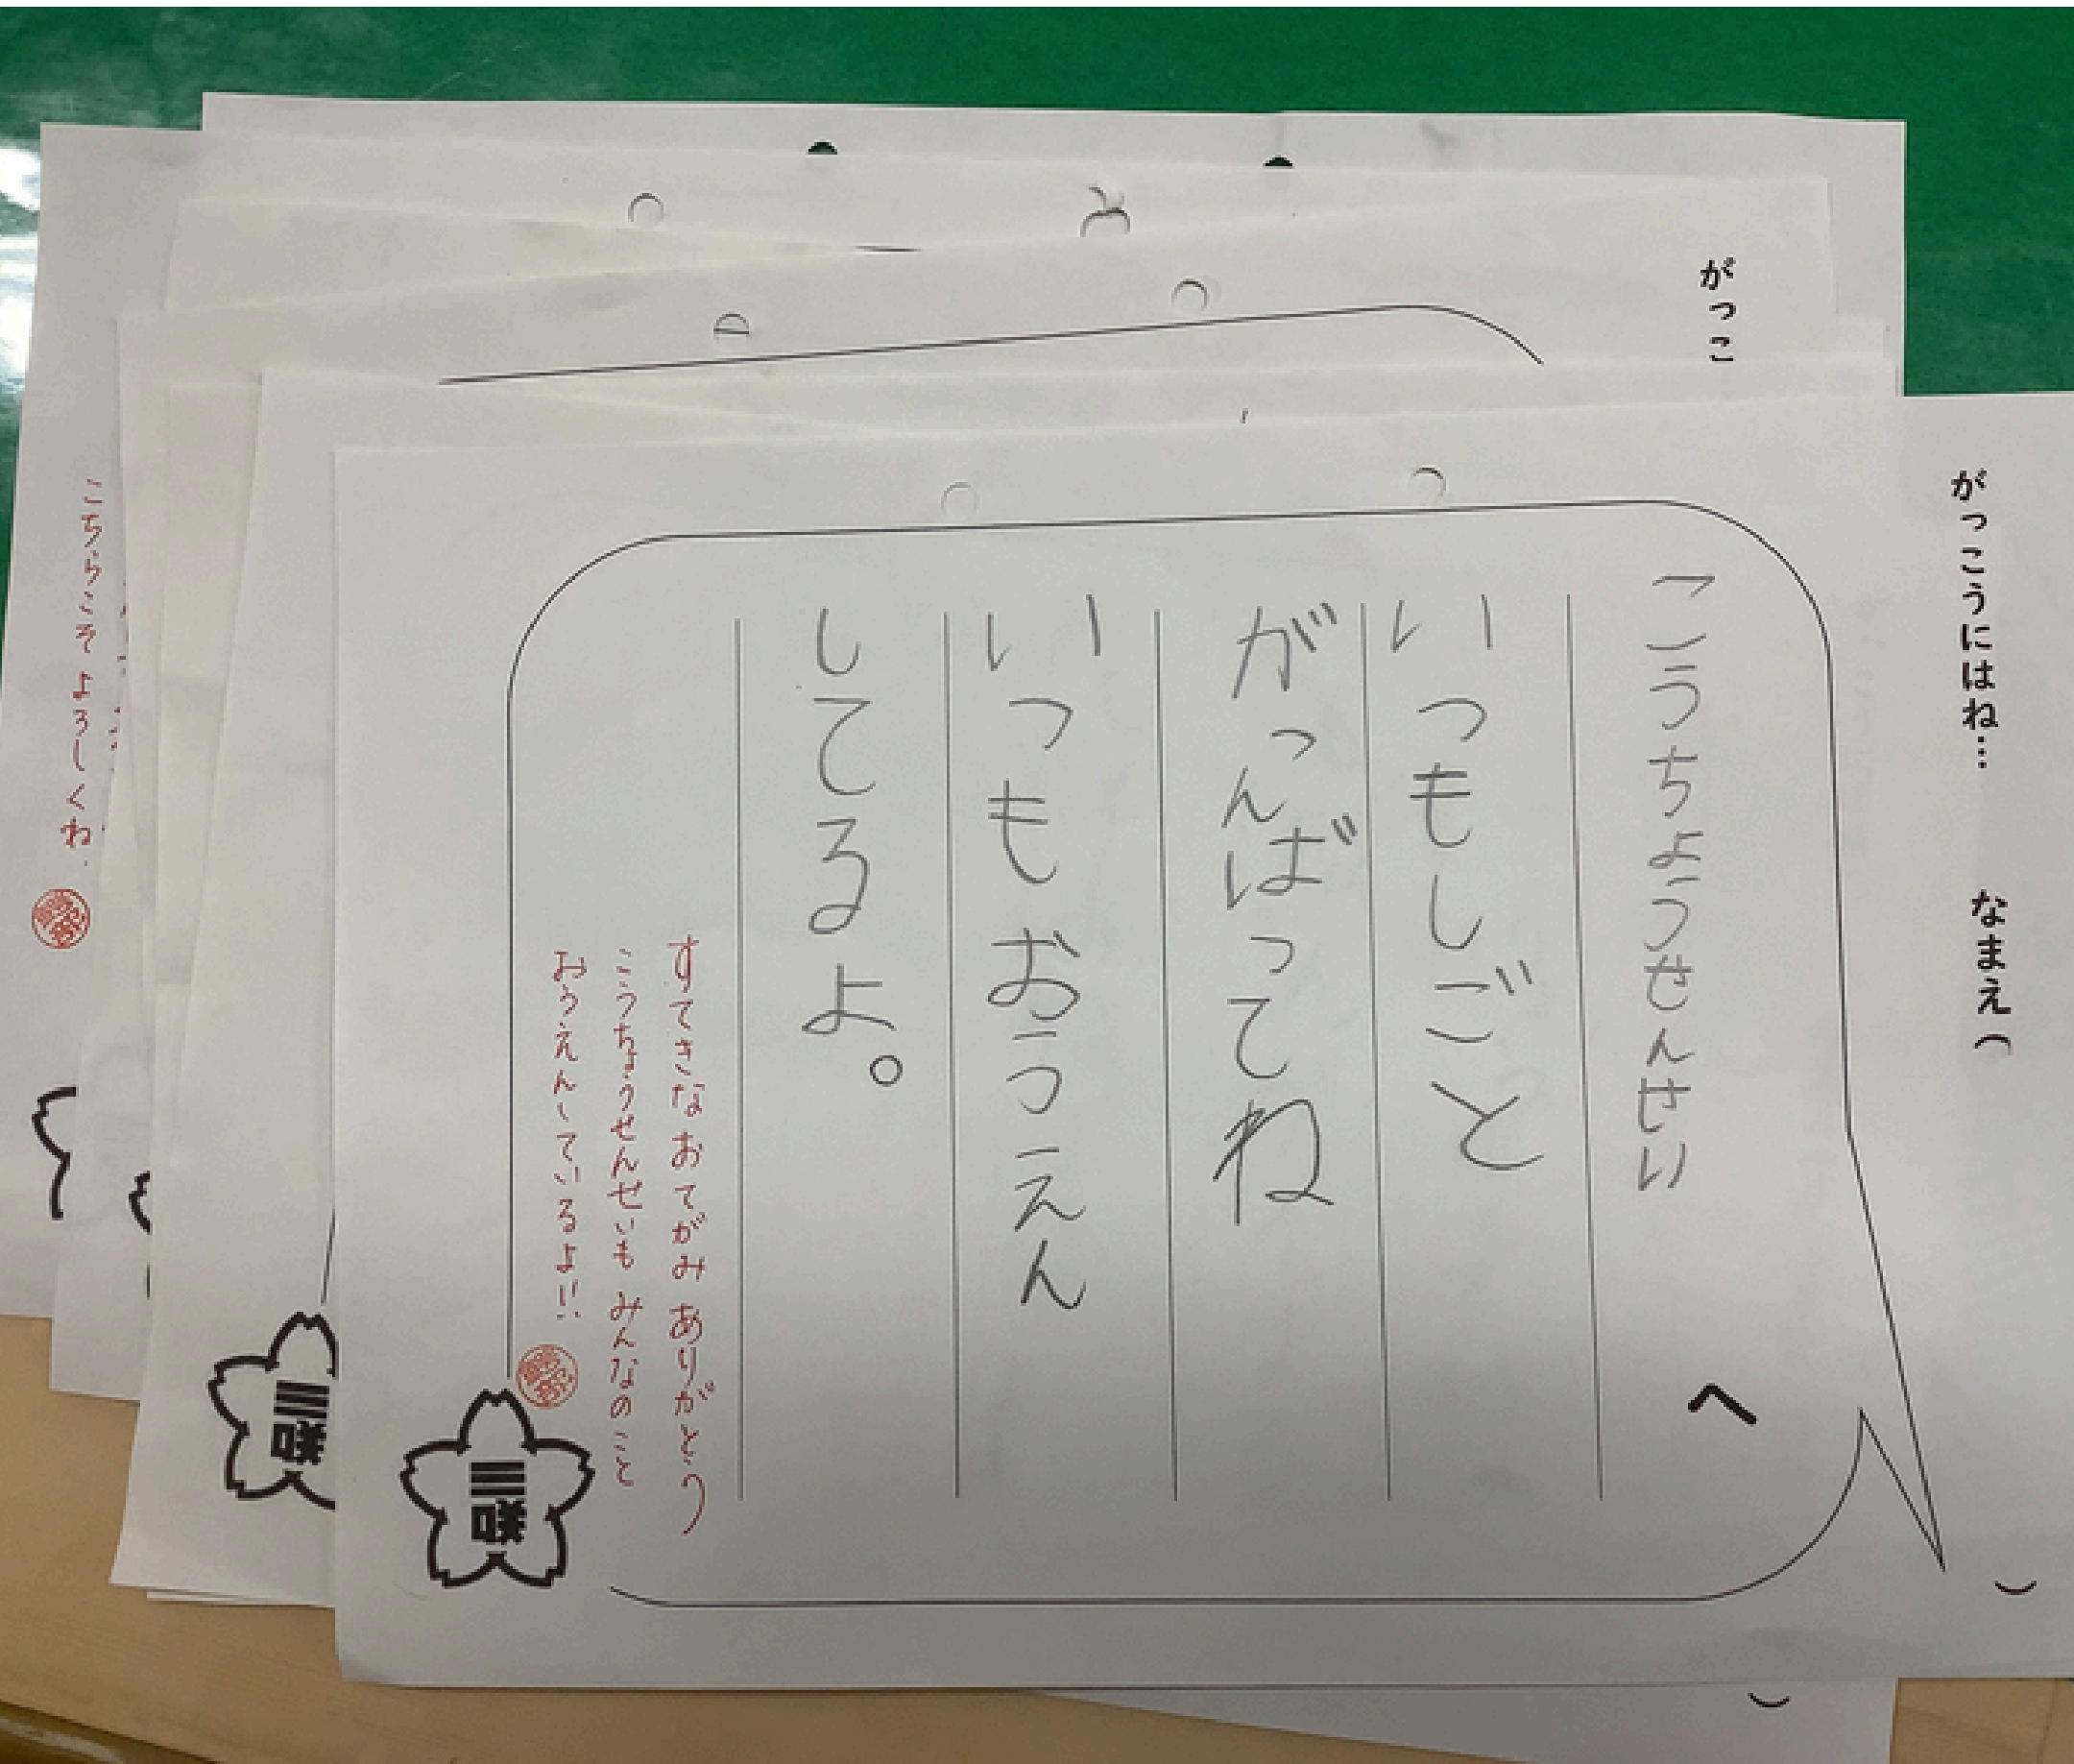 がっこうにはね… なまえ（ ）
こうちょうせんせい へ
いつもしごと
がっんばってね
いつもおうえん
してるよ。
すてきな おてがみ ありがとう
こうちょうせんせいも みんなのこと
おうえんしているよ!!
三和
がっこ
三和
こちらこそ よろしくね.